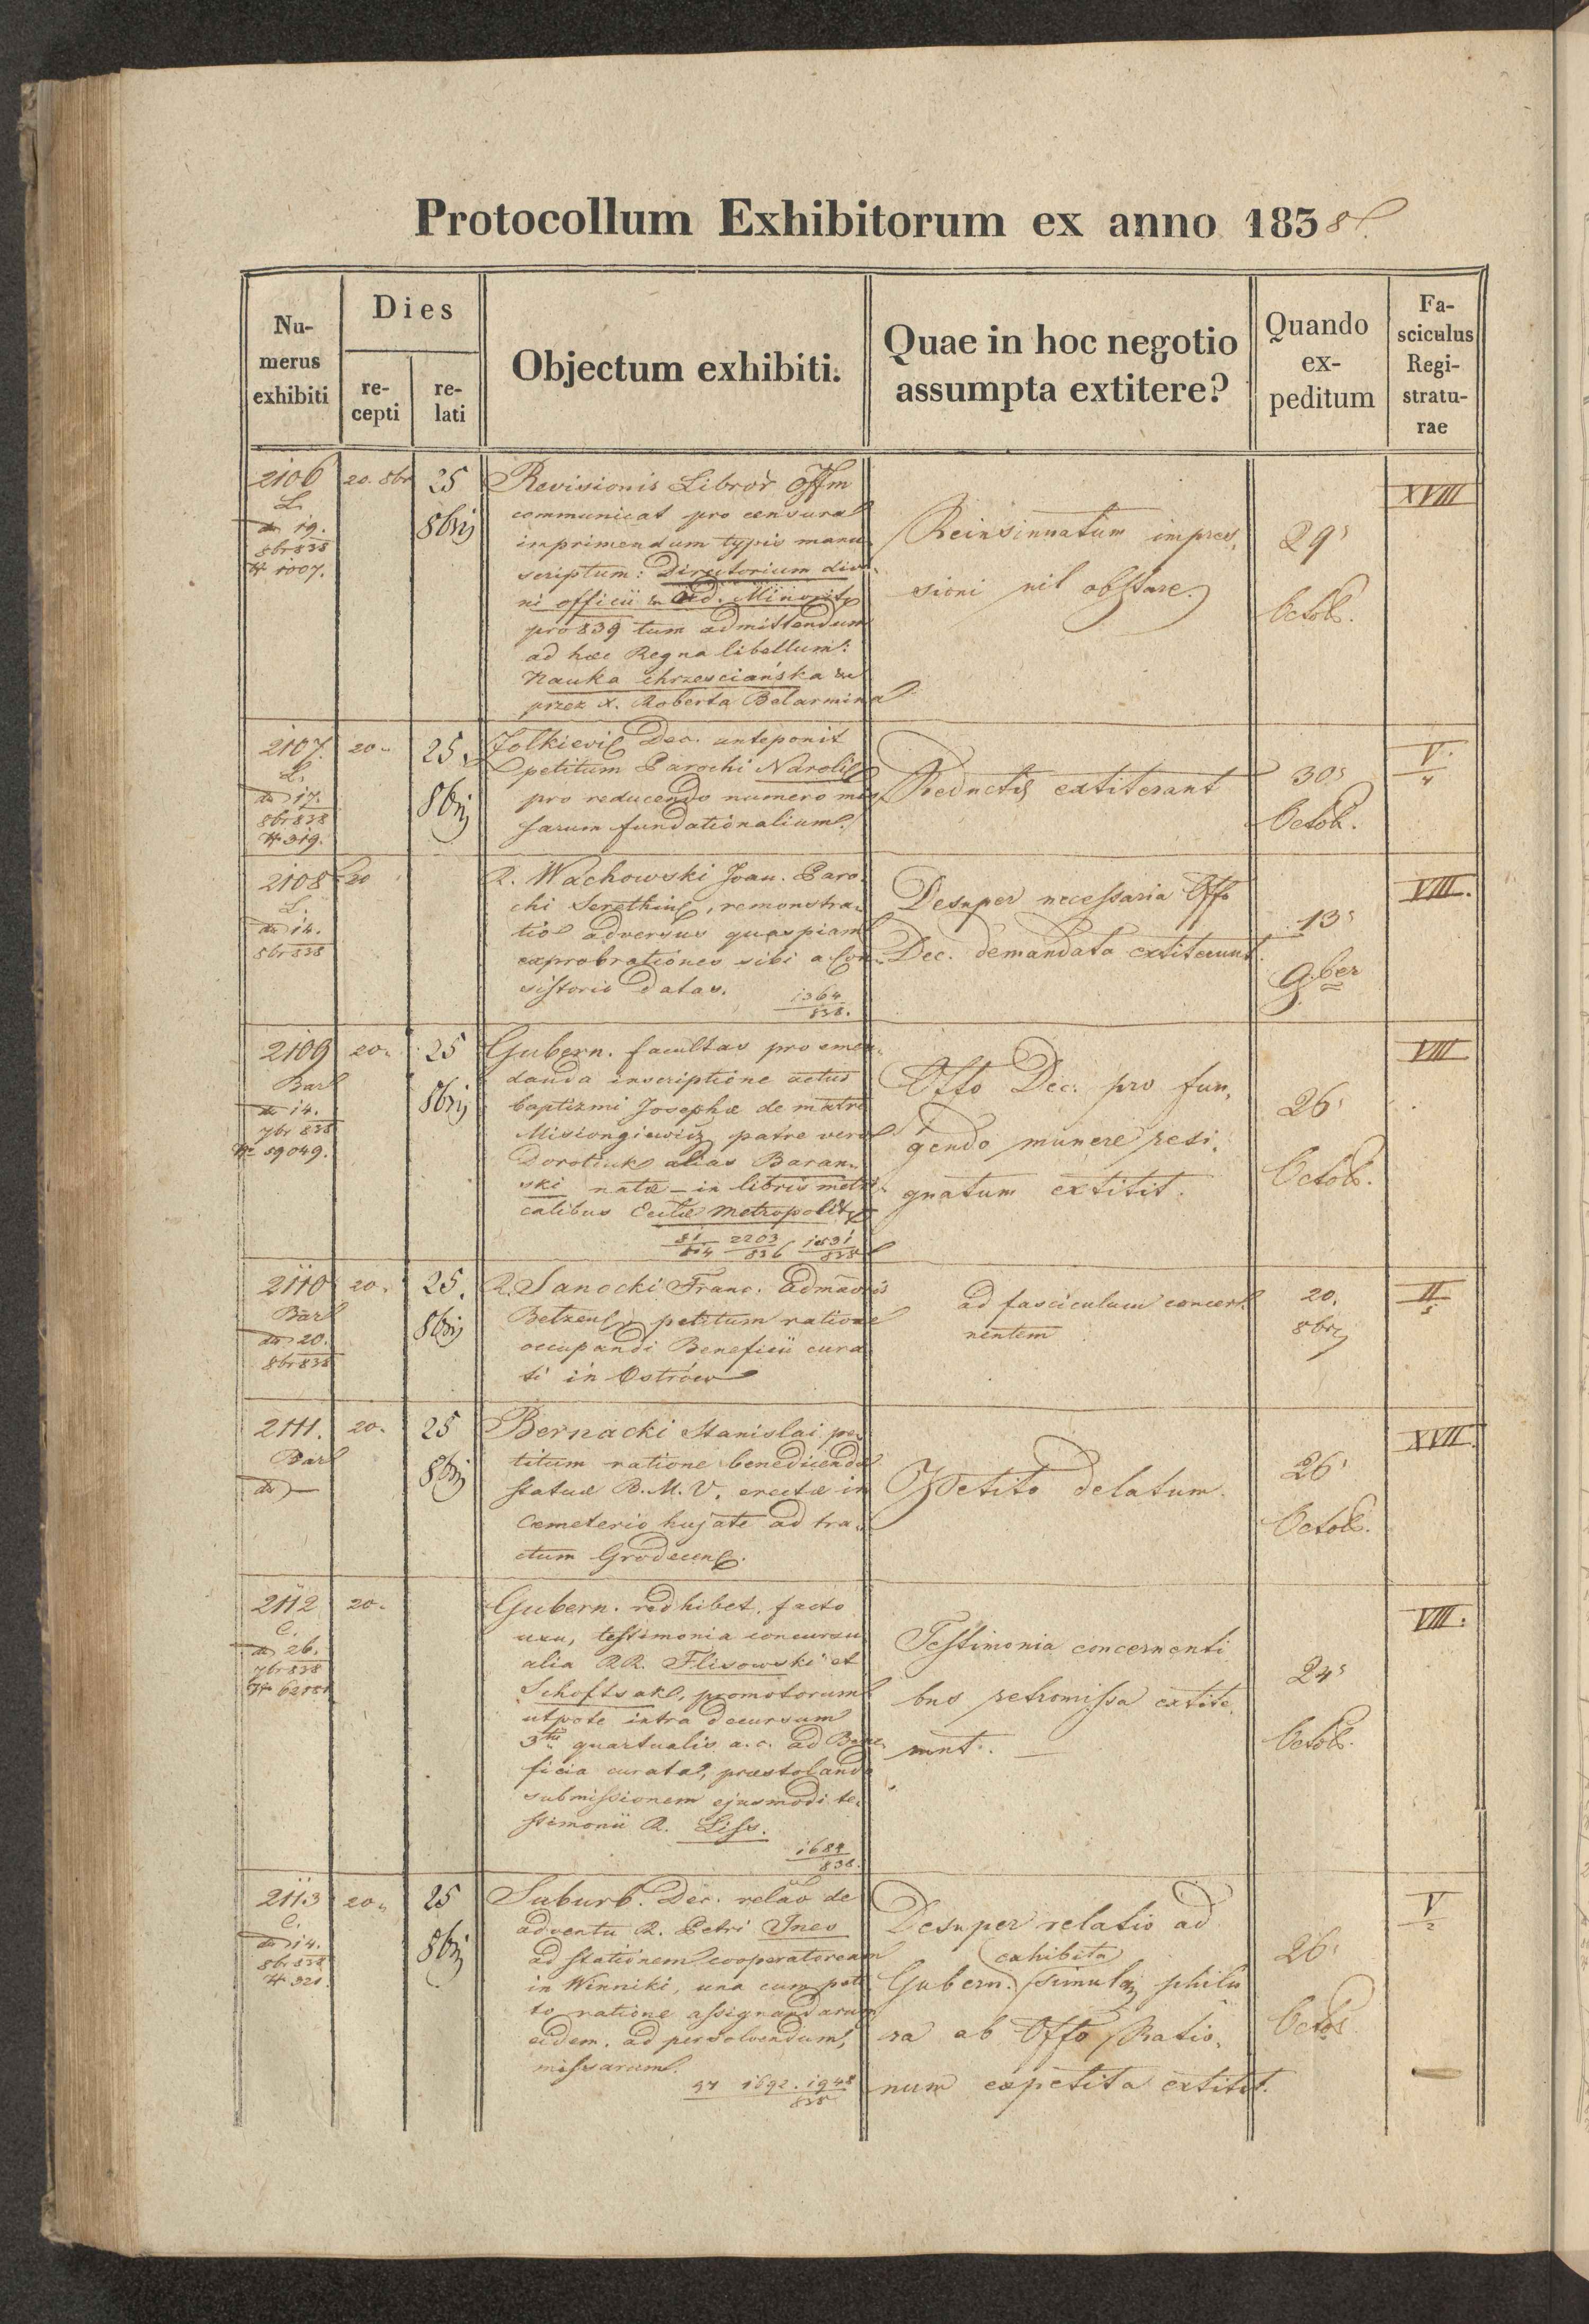 Protocollum Exhibitorum ex anno 1838.
Nu-
merus
exhibiti
Dies
re-
cepti
re-
lati
Objectum exhibiti.
Quae in hoc negotio
assumpta extitere?
Quando
ex-
peditum
Fa-
sciculus
Regi-
stratu-
rae
2106
L.
19.
8br 838
1007.
20. 8br
25
8bris
Revisionis Libror Offm
communicat pro censura
imprimendum typis manu
scriptum: Directorium divi
ni officii Ord. Minorit
pro 839 tum admittendum
ad hæc Regna libellum:
Nauka chrzesciańska
przez X. Roberta Belarmina
Reinsinuatum impres,
sioni nil obstare.
29
Octob.
XVIII
2107.
L.
17.
8br 838
319.
20.
25.
8bris
Zolkievi Dec. anteponit
petitum Parochi Naroli
pro reducendo numero mis
sarum fundationalium.
Reductis extiterant
30
Octob.
V.
4
2108
L.
14.
8br 838
20
R. Wachowski Joan. Paro
chi Serethin, remonstra
tio adversus quaspiam
exprobrationes sibi a Con
sistorio datas.
1364
838.
Desuper necessaria Offo
Dec. demandata extiterunt.
13
9ber
VIII.
2109
Bar
14.
7br 838
59049.
20.
25
8bris
Gubern. facultas pro emen
danda inscriptione actus
baptizmi Josephæ de matre
Misiongiewicz patre vero
Dorotiuk alias Baran
ski natæ – in libris metri
calibus Eccllæ Metropolit
81 2203 1831
814 836 838
Offo Dec. pro fun,
gendo munere resi
gnatum extitit.
26
Octob.
VIII
2110
Bar
20.
8br 838
20.
25.
8bris
R. Sanocki Franc. Admtoris
Betzens petitum ratione
occupandi Beneficii cura
ti in Ostrów
ad fasciculum concer
nentem
20.
8bris
II
5
2111.
Bar
20.
25
8bris
Bernacki Stanislai pe
titum ratione benedicendæ
statuæ B. M. V. erectæ in
Cæmeterio hujate ad tra
ctum Grodecens.
Petito delatum.
26
Octob.
XVII.
2112
C.
26.
7br 838
20.
Gubern. redhibet, facto
usu, testimonia concursu
alia RR. Flisowski et
Schoftsak, promotorum
utpote intra decursum
3tii quartualis a. c. ad Bene
ficia curata, præstolando
submissionem ejusmodi te
stimonii R. Liss.
1684
838.
Testimonia concernenti
bus retromissa extite
runt. –
24
Octob.
VIII.
2113
C.
14.
8br 838
321.
20.
25
8bris
Suburb. Dec. relao de
adventu R. Petri Ines
ad stationem cooperatoream
in Winniki, una cum peti
to ratione assignandarum
eidem, ad persolvendum,
missarum.
97 1692. 1948
838
Desuper relatio ad
exhibita
Gubern. simulq philu
ra ab Offo Ratio,
num expetita extitit.
26
Octob
V
2